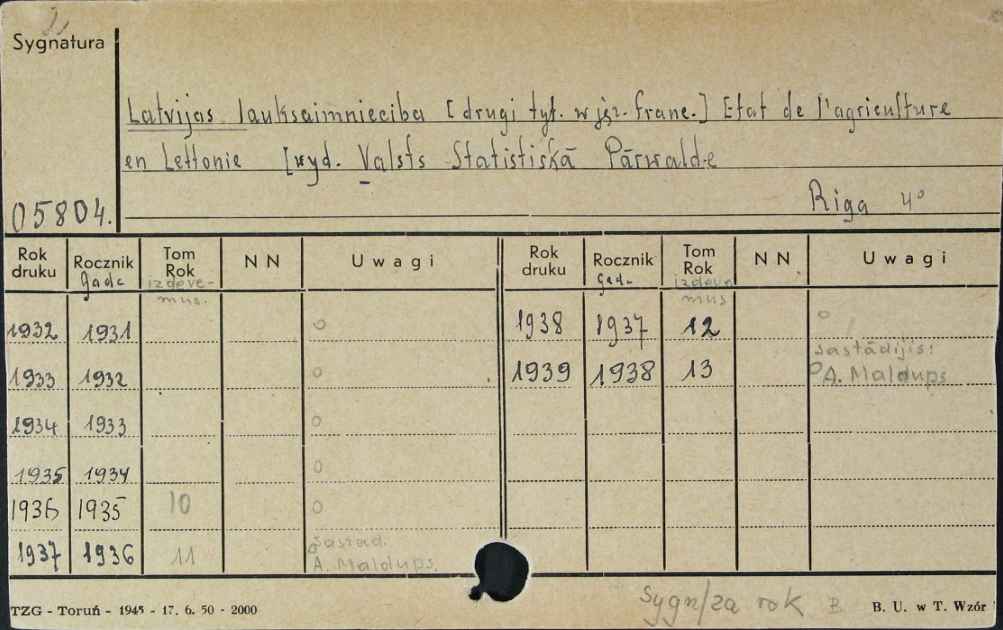 Sygnatura
Latvijas lauksaimnieciba [drugi tyt. w jęz. franc.] Etat de l'agriculture
en Lettonie [wyd. Valsts Statistiskā Pārwalde
05804. Riga 4°
Rok druku Rocznik Gada Tom Rok izdevemus. NN Uwagi Rok druku Rocznik Gad. Tom Rok izdevumus NN Uwagi
1932 1931 o 1938 1937 12 o
1933 1932 o 1939 1938 13 sastādijis: A. Maldups
1934 1933 o
1935 1934 o
1936 1935 10 o
1937 1936 11 sastad. A. Maldups.
Sygn/za rok B
TZG - Toruń - 1945 - 17. 6. 50 - 2000 B. U. w T. Wzór